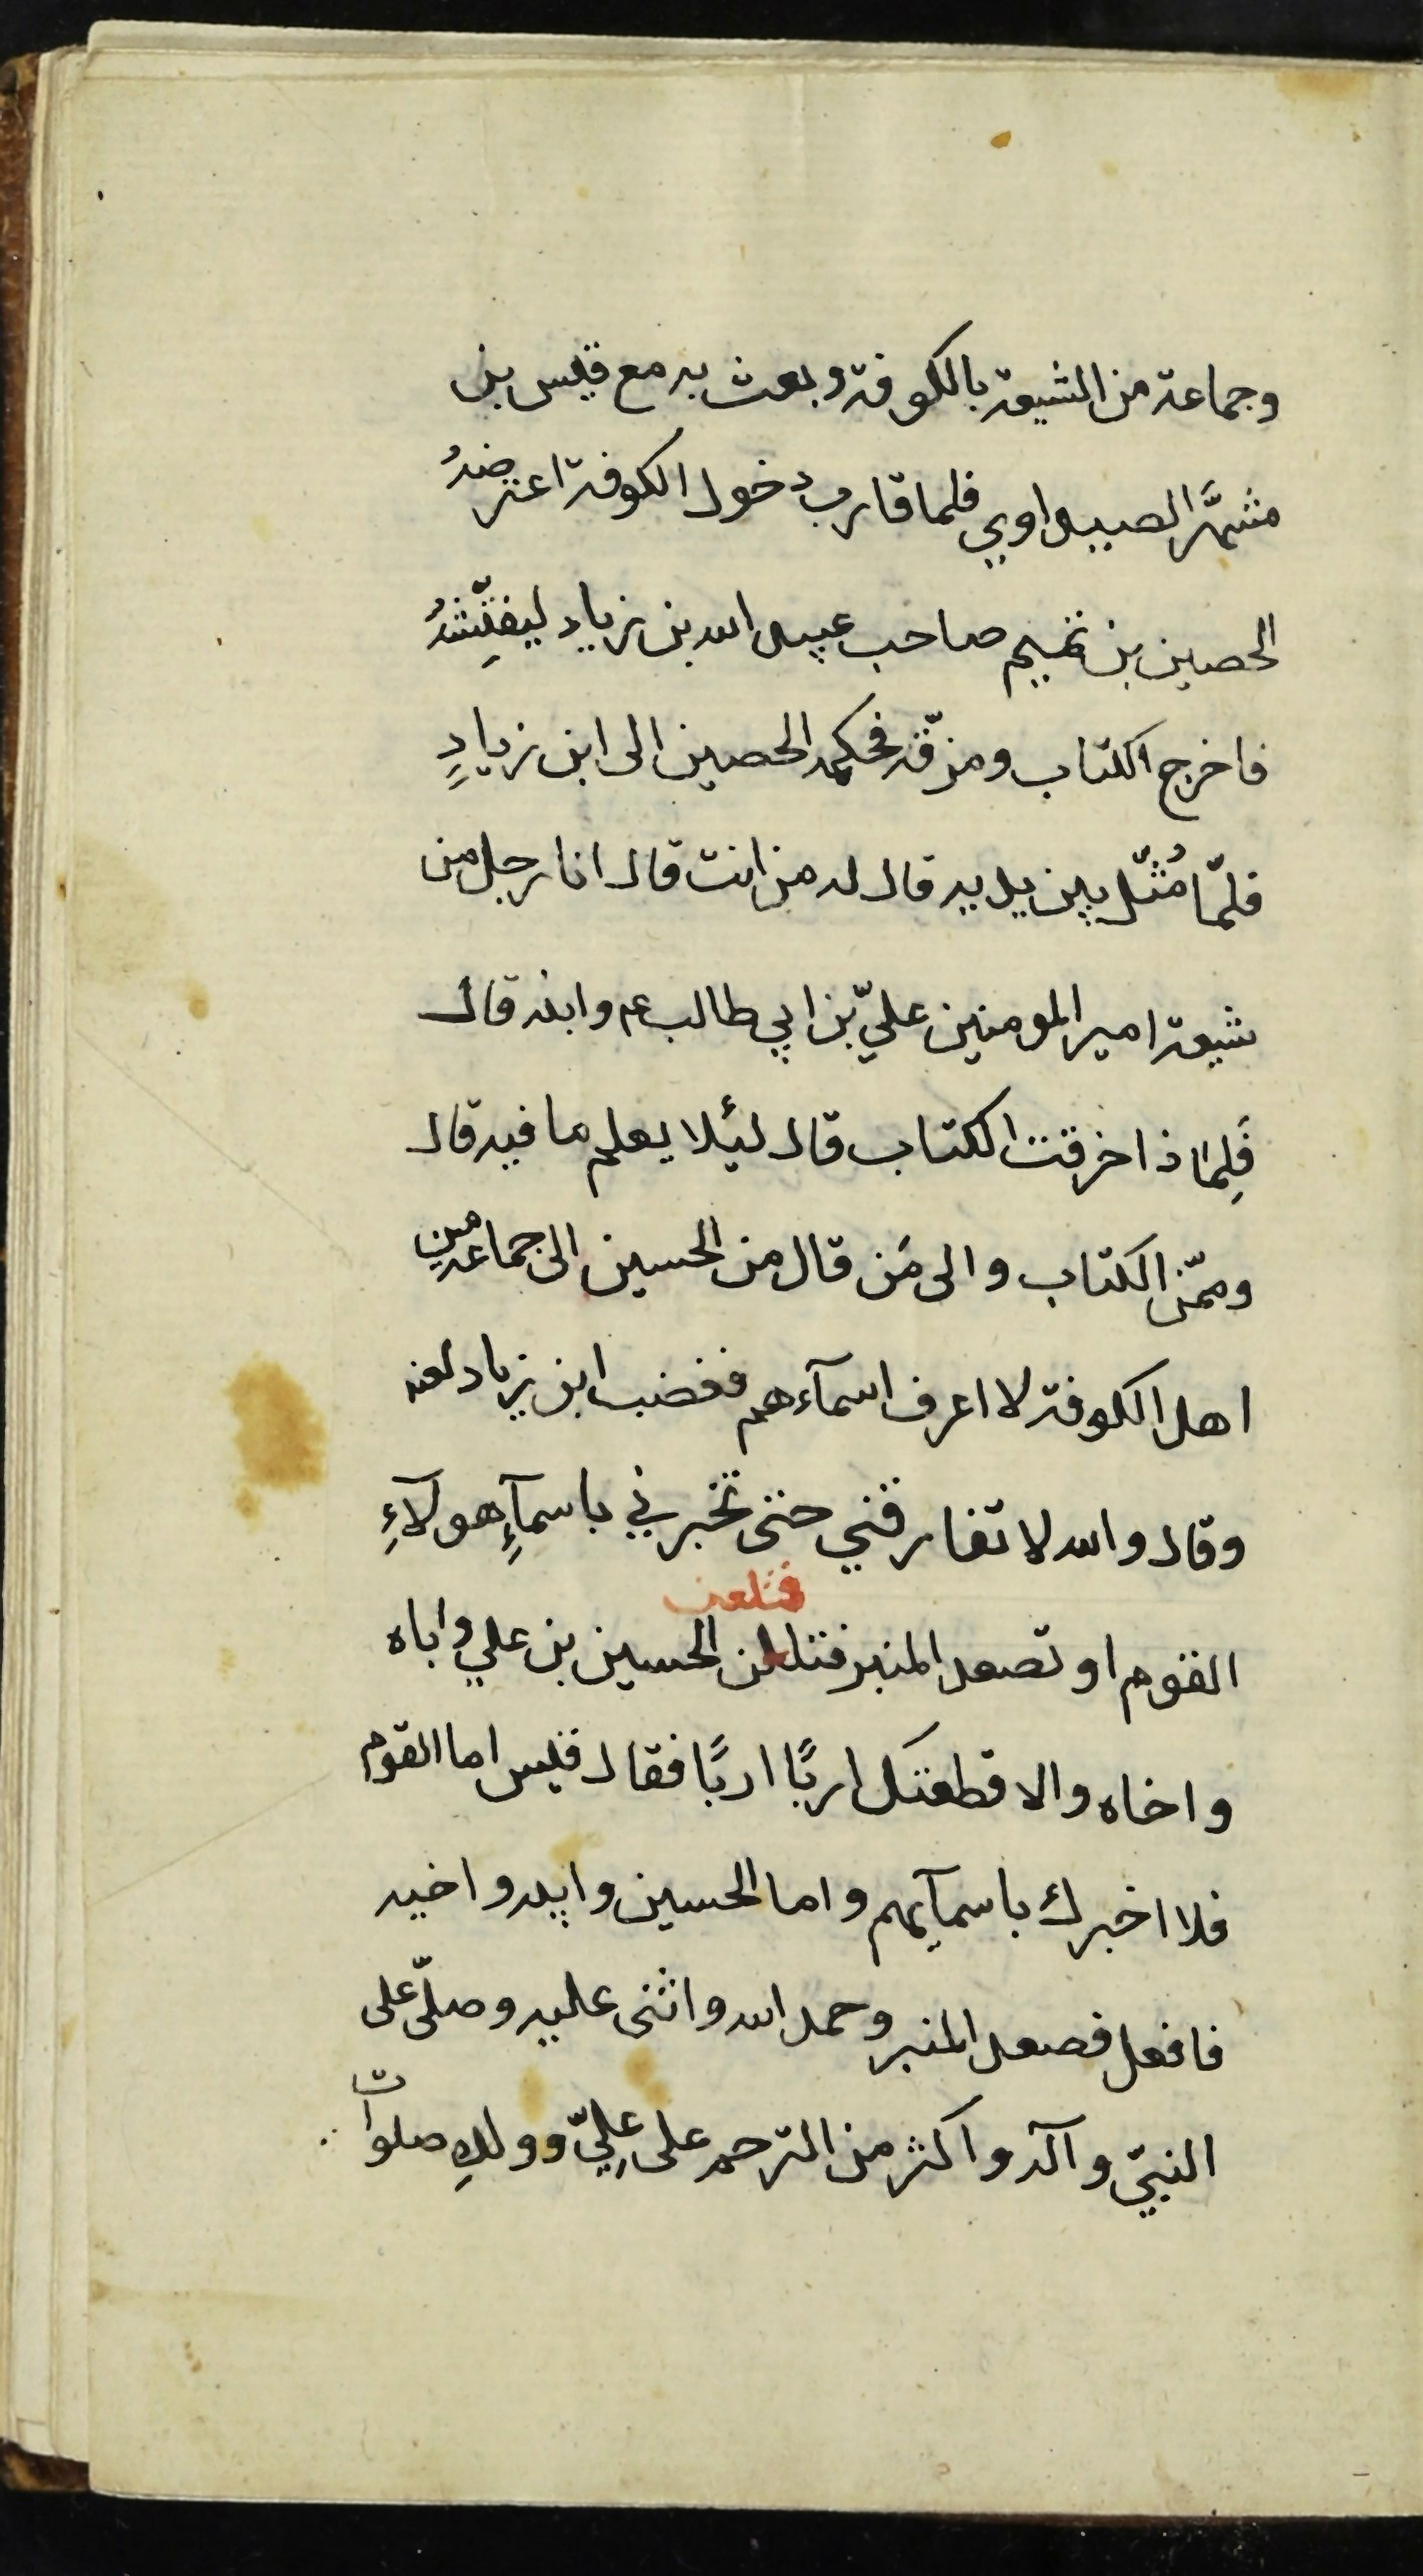 وجماعة من الشيعة بالكوفة وبعث به مع قيس بن
مشهَّر الصيداوي فلما قارب دخول الكوفة اعترضهُ
الحصين بن تميم صاحب عبيد الله بن زياد ليفتِّشهُ
فاخرج الكتاب ومزّقه فحكمه الحصين الى ابن زيادٍ
فلمّا مُثّل بين يديه قال له من انت قال انا رجل من
شيعة امير المومنين عليّ بن ابي طالب عم وابنه قال
فَلِماذا خرقت الكتاب قال لئُلا يعلم ما فيه قال
وممّن الكتاب والى مَن قال من الحسين الى جماعة من
اهل الكوفة لا اعرف اسمآءهم فغضب ابن زياد لعنه
وقال والله لا تفارقني حتى تخبرني باسمآءِ هولآءِ
فتلعن
القوم او تصعد المنبر فتللن الحسين بن علي واباه
واخاه والا قطعتك اربًا اربًا فقال قيس اما القوم
فلا اخبرك باسمآيهم واما الحسين وابيه واخيه
فافعل فصعد المنبر وحمد الله واثنى عليه وصلّى على
النبيّ وآله واكثر من الترحم على عليّ وولدِه صلوات